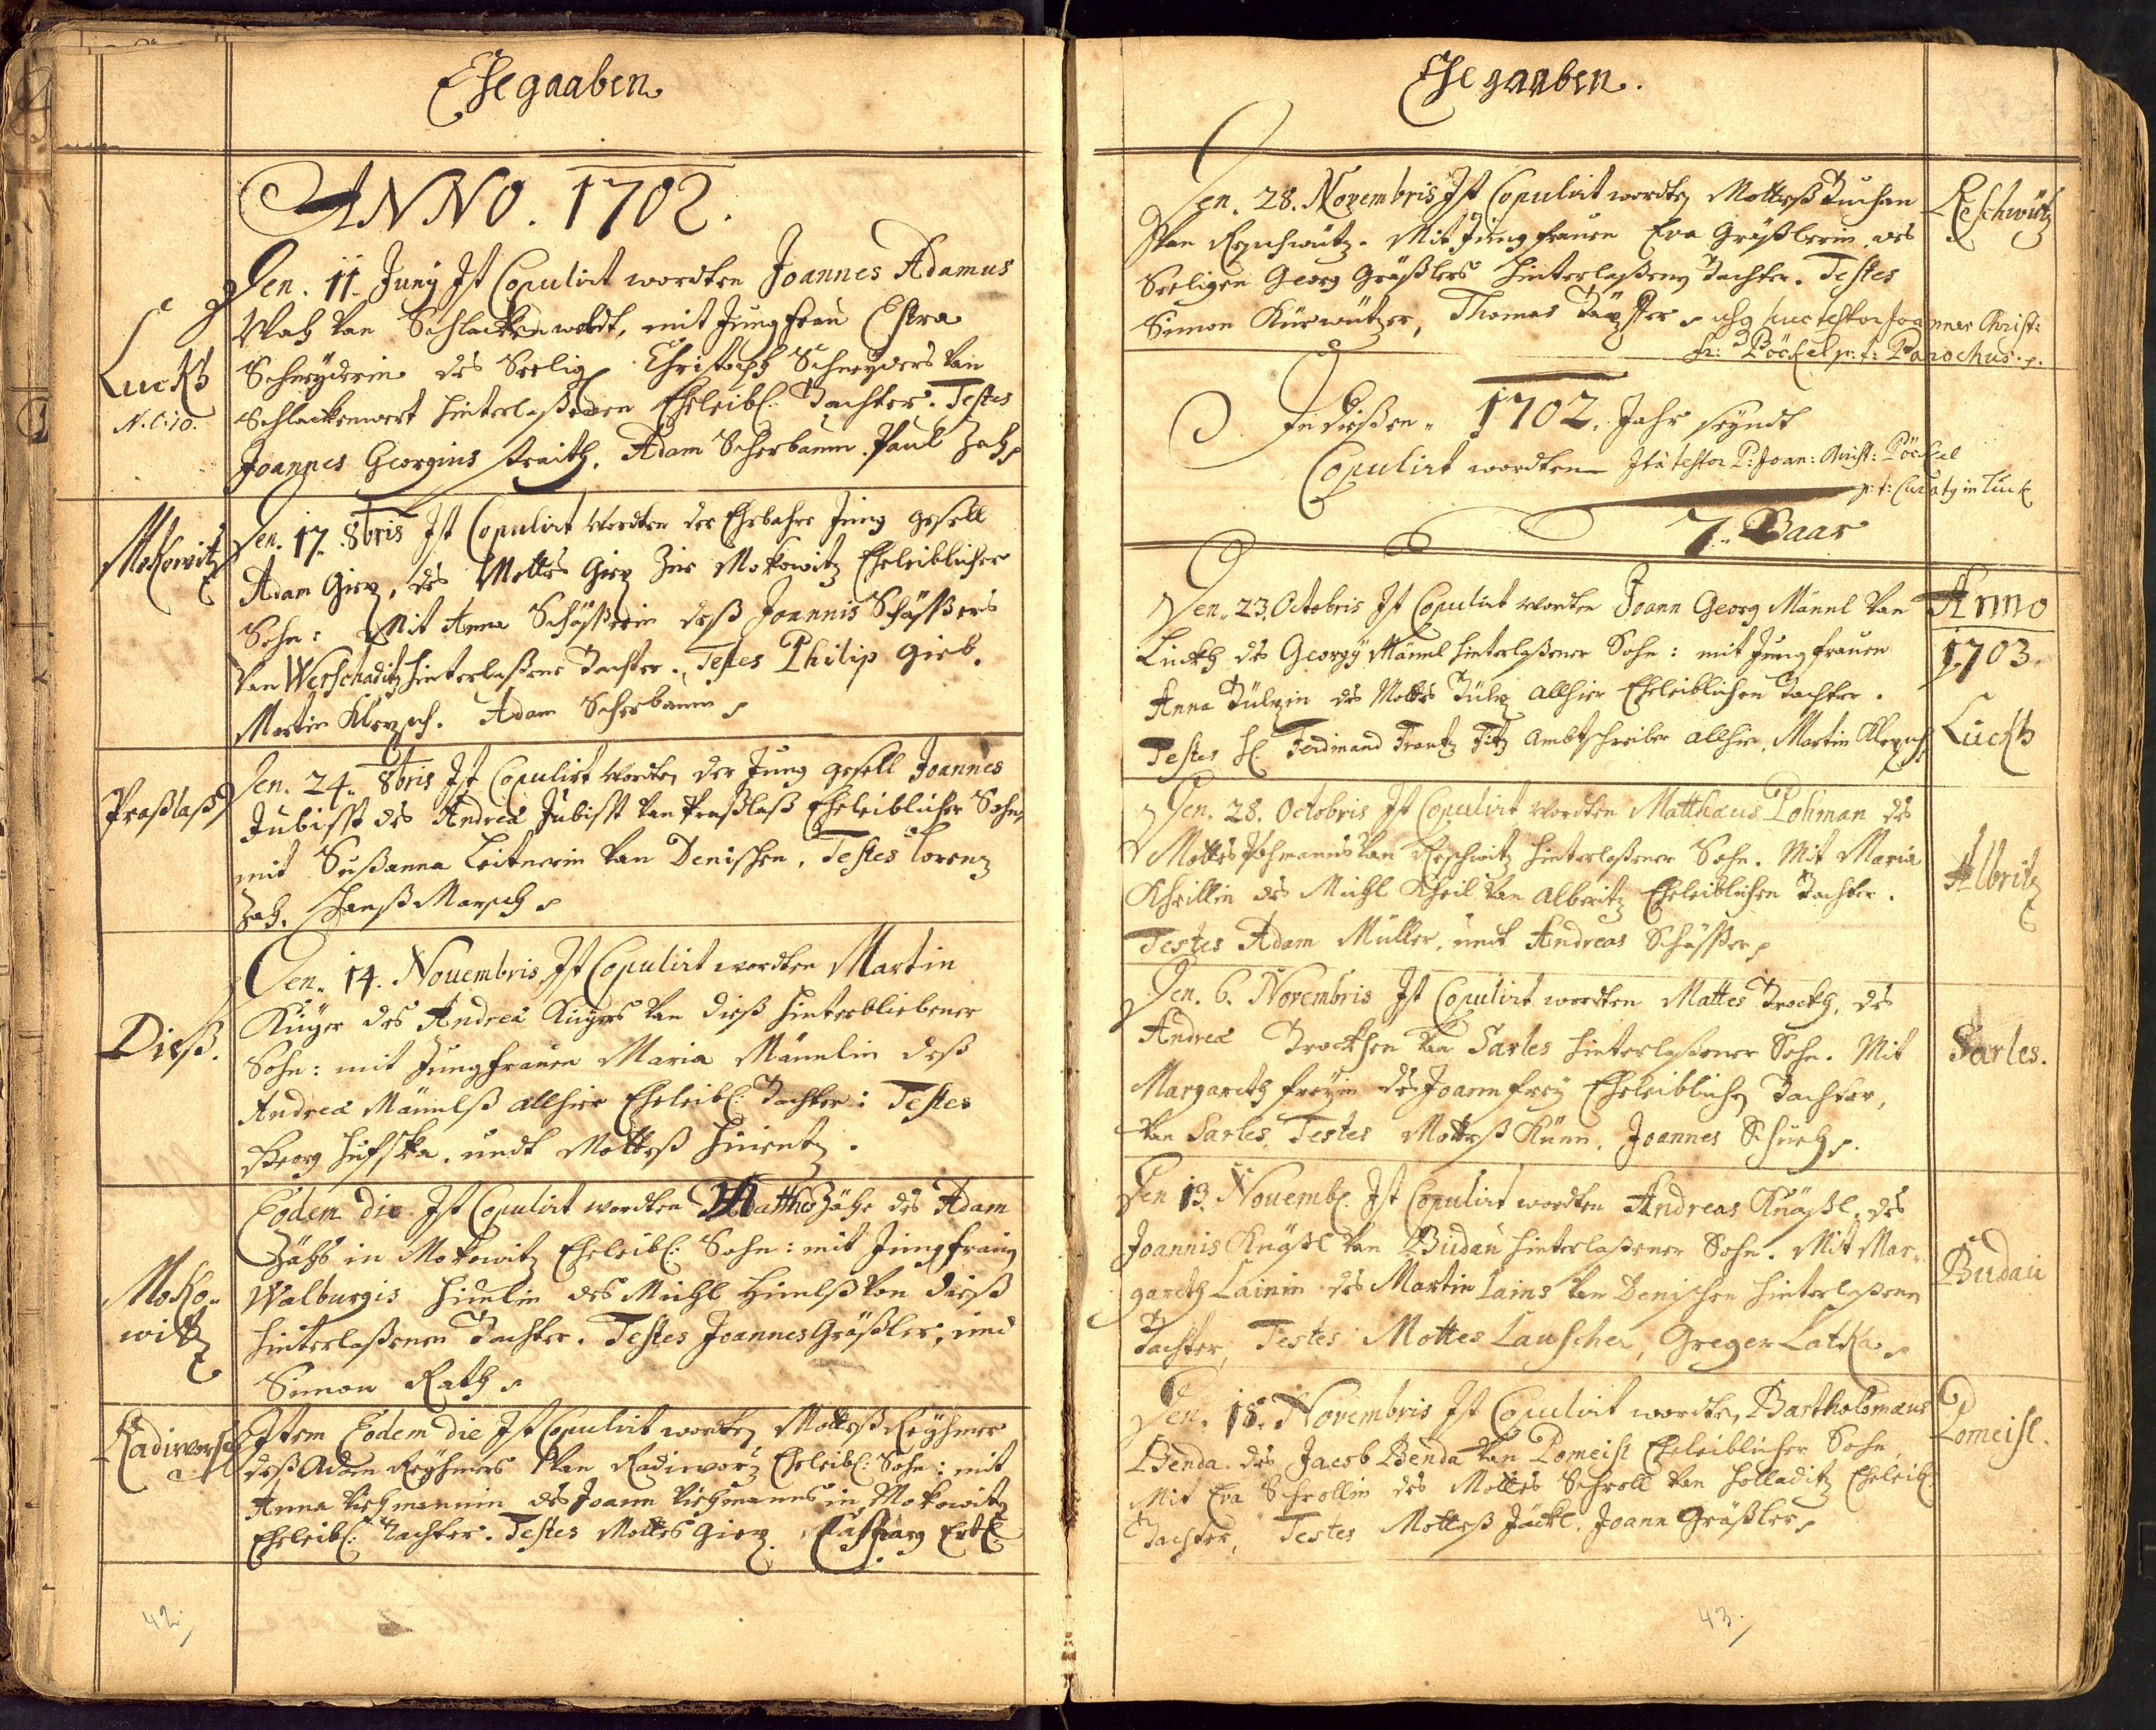 Ehegaaben
ANNO. 1702.
Luckh
N. C: 10.
Den. 11. Juny Ist Copulirt wordten Joannes Adamus
Van Schlackenwerdt, mit Jungfrau
Schneyderin des Seelig Christoph Schneyders Van
Schlackenwert hinterlaßenen Eheleibl: Dochter. Testes
Joannes Georgius Adam Scherbaum. Paul Zah
Mokowitz
Den. 17. 8bris Ist Copulirt wordten der Ehrbahre Jung gesell
Adam Giex, des Mottes Giex Zue Mokowitz Eheleiblicher
Sohn: Mit Anna Schäfferin deß Joannis Schäffers
Van Werschaditz hinterlaßene Dochter. Testes Philip Gieb.
Martin Klepsch. Adam Scherbaum
Praßlaß
Den. 24. 8bris Ist Copulirt wordten der Jung gesell Joannes
Jubisst des Andreä Jubisst Van Praßlaß Eheleiblicher Sohn,
mit Sußanna Leitnerin Van Denischen. Testes Lorenz
Zah. Hanß Marsch
Dieß.
Den. 14. Nouembris Ist Copulirt wordten Martin
Küger des Andreä Kügers Van Dieß hinterbliebener
Sohn: mit Jungfrauen Maria Männlin deß
Andreä Männelß allhier Eheleibl: Dochter: Testes
Georg undt Motteß
Moko-
witz
Eodem die Ist Copulirt wordten Matthes Zähe des Adam
Zähs in Mokowitz Eheleibl: Sohn: mit Jungfrau
Walburgis Himlin des Michl Himlß Von Dieß
hinterlaßenen Dochter. Testes Joannes Gräßler, und
Simon Rath
Radiworsch
Item Eodem die Ist Copulirt wordten Motteß Reyhmer
deß Adam Reyhmers Van Radiworz Eheleibl: Sohn: mit
Anna Vichmannin des Joann Vichmanns in Mokowitz
Eheleibl: Dochter. Testes Mottes Giex.
42
Ehegaaben.
Den. 28. Novembris Ist Copulirt wordten Motteß Duchan
Van Reschwitz. Mit Jungfrauen Eva Gräßlerin, des
Seeligen Georg Gräßlers hinterlaßeny Dochter. Testes
Simon Kürwitzer, Thomas Joannes Christ:
Pöckel p: t: Parochus.
Reschwitz
In dießen 1702. Jahr seyndt
Copulirt wordten Ita testor P: Joan: Christ: Pöckel
p: t: Curaty in Luck
7. Paar
Anno
1703.
Luckh
Den. 23. Octobris Ist Copulirt worten Joann Georg Männl Van
Luckh des Georgy Männl hinterlaßener Sohn: mit Jungfrauen
Anna des Mottes allhier Eheleiblichen Dochter.
Testes H. Ferdinand Frantz Titz Ambtschreiber allhier, Martin Klepsch
Albritz
Den. 28. Octobris Ist Copulirt wordten Matthaeus Pohman des
Mottes Pohmanns Van Reschwitz hinterlaßener Sohn. Mit Maria
Kheillin des Michl Kheil Van Alberitz Eheleiblichen Dochter.
Testes Adam Müller, undt Andreas Schäffer
Sarles.
Den. 6. Novembris Ist Copulirt wordten Mattes Drockh, des
Andreä Drockhen Van Sarles hinterlaßener Sohn. Mit
Margareth freyin des Joann frey Eheleiblichen Dochter,
Van Sarles, Testes Motteß Künn. Joannes Schueh
Budau
Den 13. Nouemb: Ist Copulirt wordten Andreas Knäßl, des
Joannis Knäßl Van Budau hinterlaßener Sohn. Mit Mar-
gareth Lainin des Martin Lains Van Denischen hinterlaßenen
Dochter, Testes Mottes Lauscher, Greger Latka
Pomeisl.
Den. 18. Novembris Ist Copulirt wordten, Bartholomaeus
Benda. des Jacob Benda Van Pomeisl Eheleiblicher Sohn,
Mit Eva Schrollin des Mottes Schroll Van Holladitz Eheleib:
Dochter, Testes Motteß Jäckl. Joann Gräßler
43.